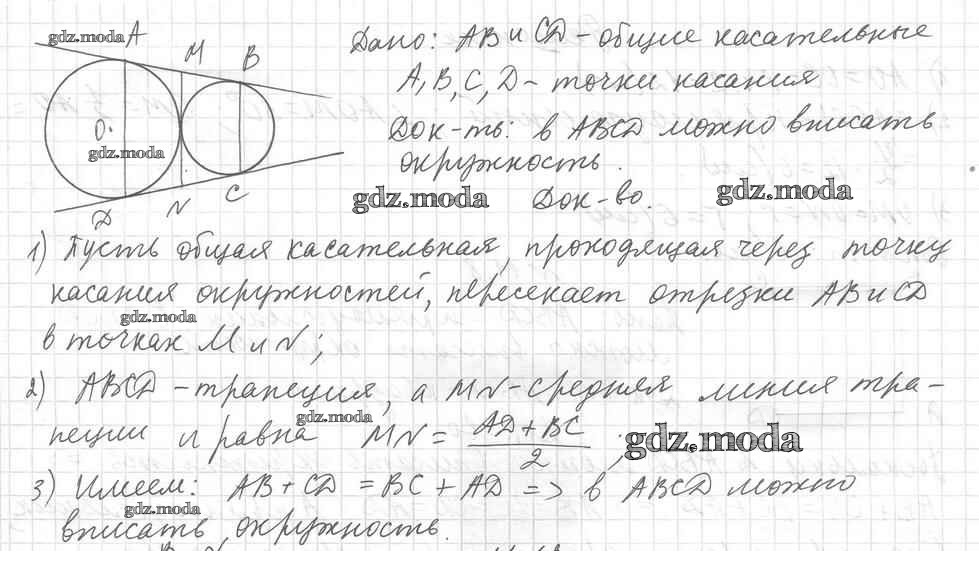 gdz.moda A
M
B
O
gdz.moda
D
N
C
Дано: AB и CD - общие касательные
A, B, C, D - точки касания
Док-ть: в ABCD можно вписать
окружность.
gdz.moda
gdz.moda
Док-во.
1) Пусть общая касательная, проходящая через точку
касания окружностей, пересекает отрезки AB и CD
gdz.moda
в точках M и N;
2) ABCD - трапеция, а MN - средняя линия тра-
gdz.moda
пеции и равна MN = (AD + BC)/2;
gdz.moda
3) Имеем: AB + CD = BC + AD => в ABCD можно
gdz.moda
вписать окружность.